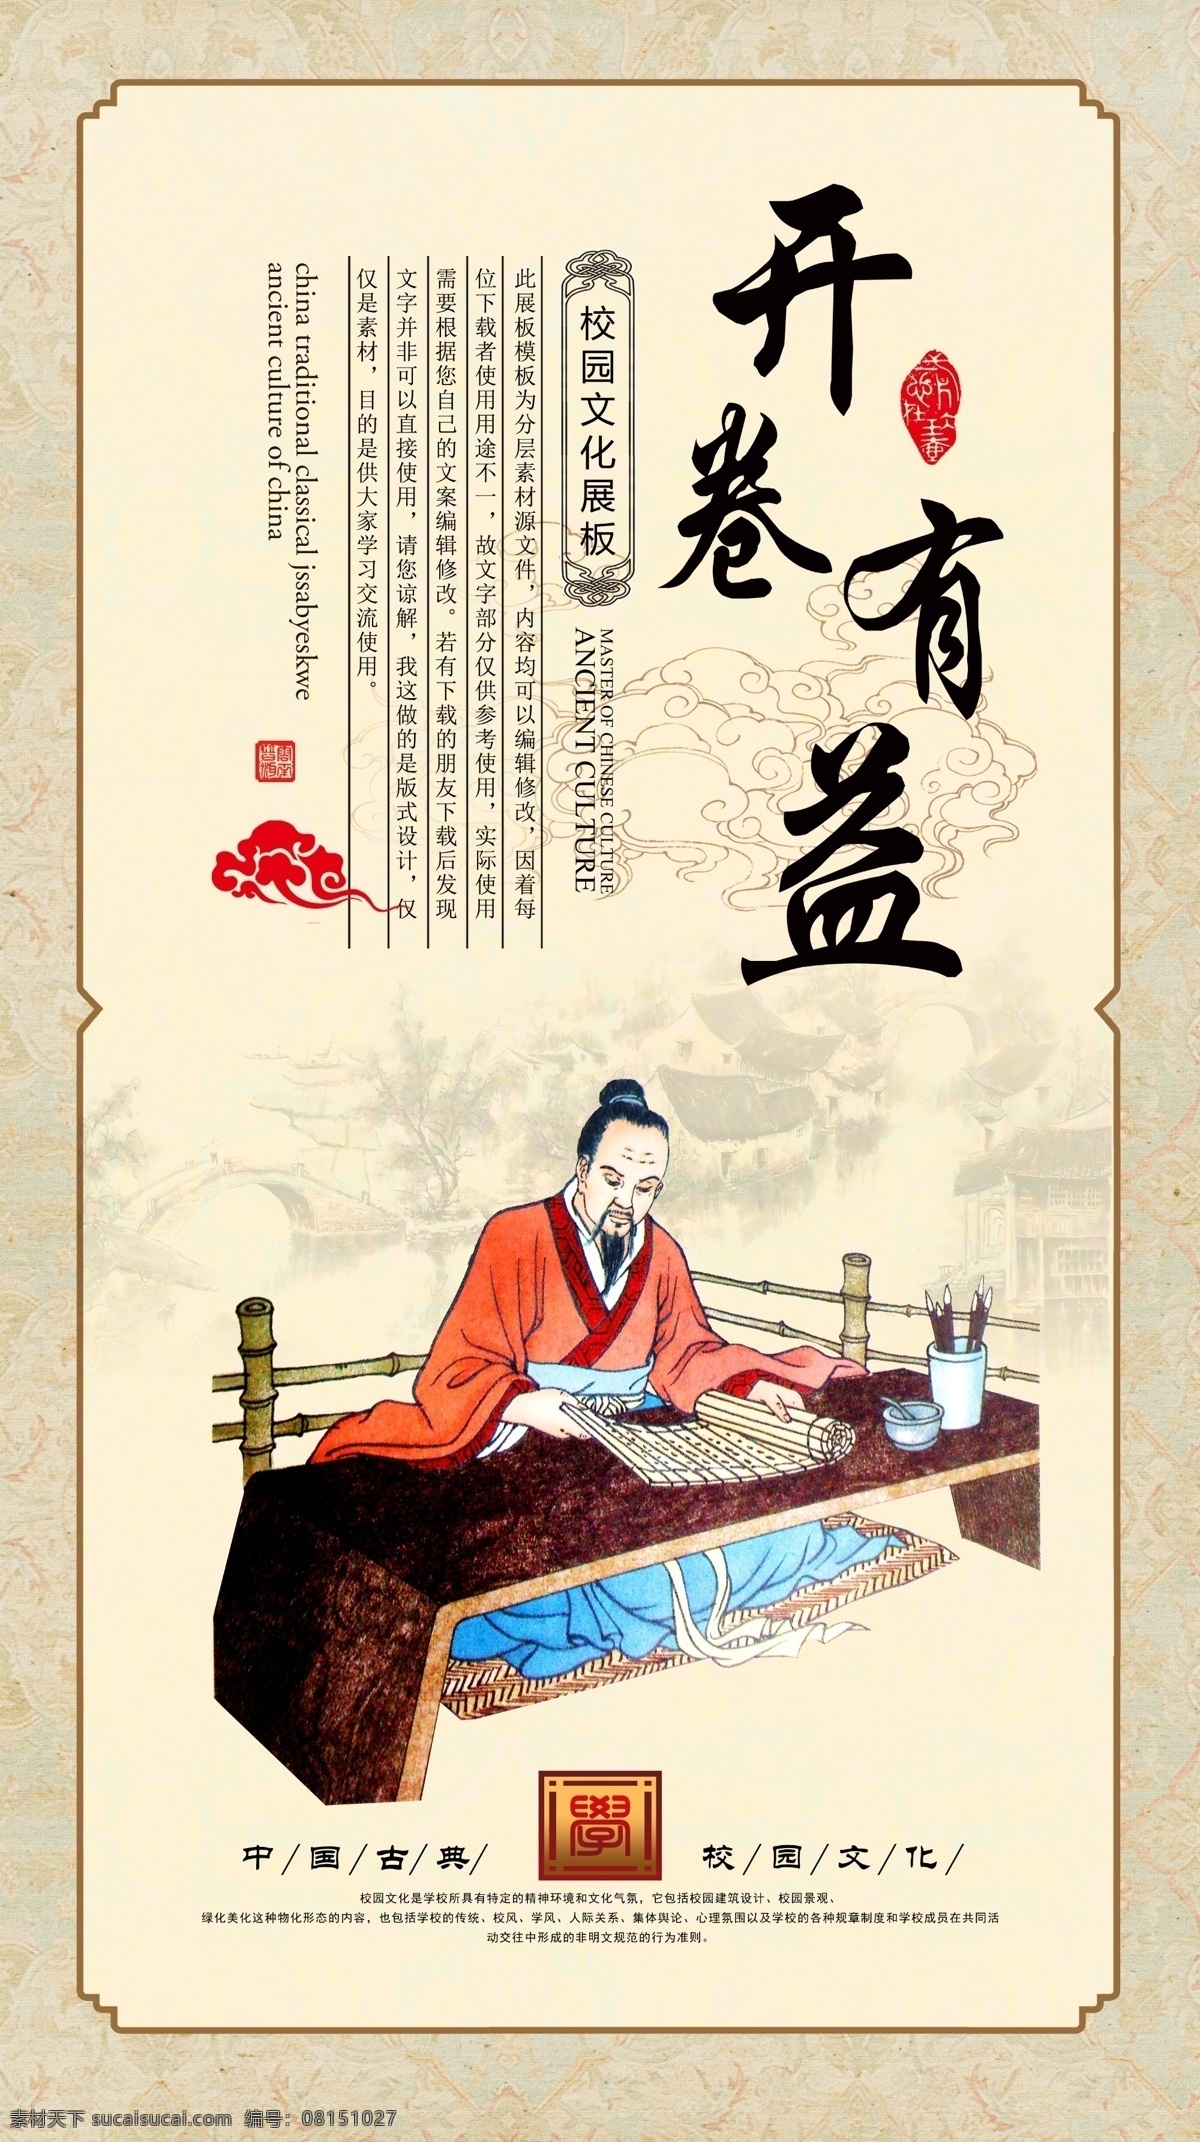 开卷有益
校园文化展板
MASTER OF CHINESE CULTURE
ANCIENT CULTURE
此展板模板为分层素材源文件，内容均可以编辑修改，因着每
位下载者使用用途不一，故文字部分仅供参考使用，实际使用
需要根据您自己的文案编辑修改。若有下载的朋友下载后发现
文字并非可以直接使用，请您谅解，我这做的是版式设计，仅
仅是素材，目的是供大家学习交流使用。
china traditional classical jssabyeskwe
ancient culture of china
學
中/国/古/典/
校/园/文/化/
校园文化是学校所具有特定的精神环境和文化气氛，它包括校园建筑设计、校园景观、
绿化美化这种物化形态的内容，也包括学校的传统、校风、学风、人际关系、集体舆论、心理氛围以及学校的各种规章制度和学校成员在共同活
动交往中形成的非明文规范的行为准则。
素材天下 sucaisucai.com 编号：08151027